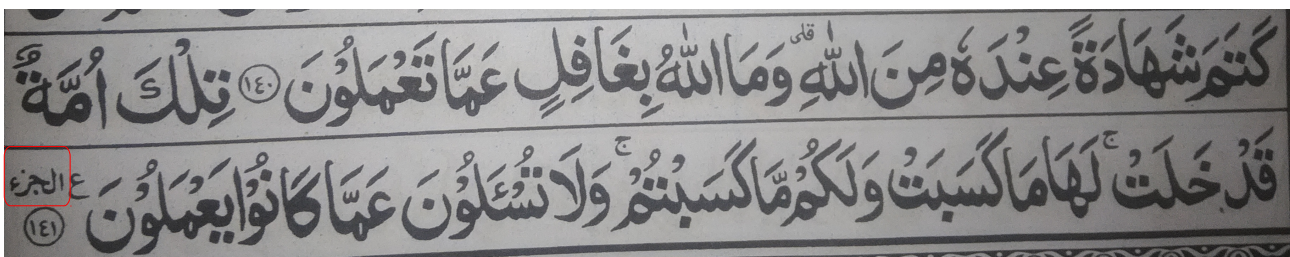 كَتَمَ شَهَادَةً عِنْدَهٗ مِنَ اللّٰهِ ۗ وَمَا اللّٰهُ بِغَافِلٍ عَمَّا تَعْمَلُوْنَ ١٤٠ تِلْكَ اُمَّةٌ
قَدْ خَلَتْ ۚ لَهَا مَا كَسَبَتْ وَلَكُمْ مَّا كَسَبْتُمْ ۚ وَلَا تُسْـَٔلُوْنَ عَمَّا كَانُوْا يَعْمَلُوْنَ ١٤١ ع الجزء